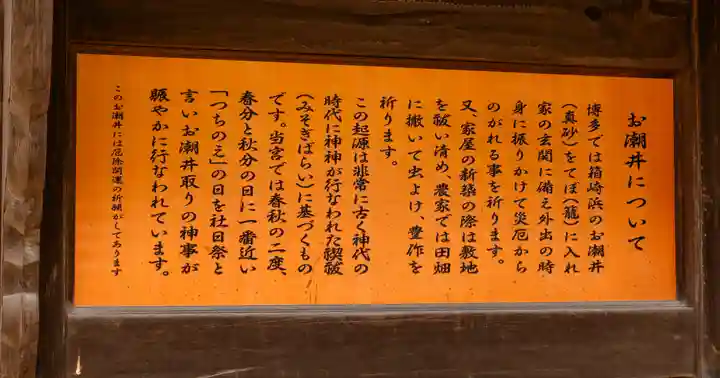 お潮井について
博多では箱崎浜のお潮井
(真砂)をてぼ(籠)に入れ
家の玄関に備え外出の時
身に振りかけて災厄から
のがれる事を祈ります。
又、家屋の新築の際は敷地
を祓い清め、農家では田畑
に撤いて虫よけ、豊作を
祈ります。
この起源は非常に古く神代の
時代に神神が行なわれた禊祓
(みそぎはらい)に基づくもの
です。当宮では春秋の二度、
春分と秋分の日に一番近い
「つちのえ」の日を社日祭と
言いお潮井取りの神事が
賑やかに行なわれています。
このお潮井には厄除開運の祈願がしてあります